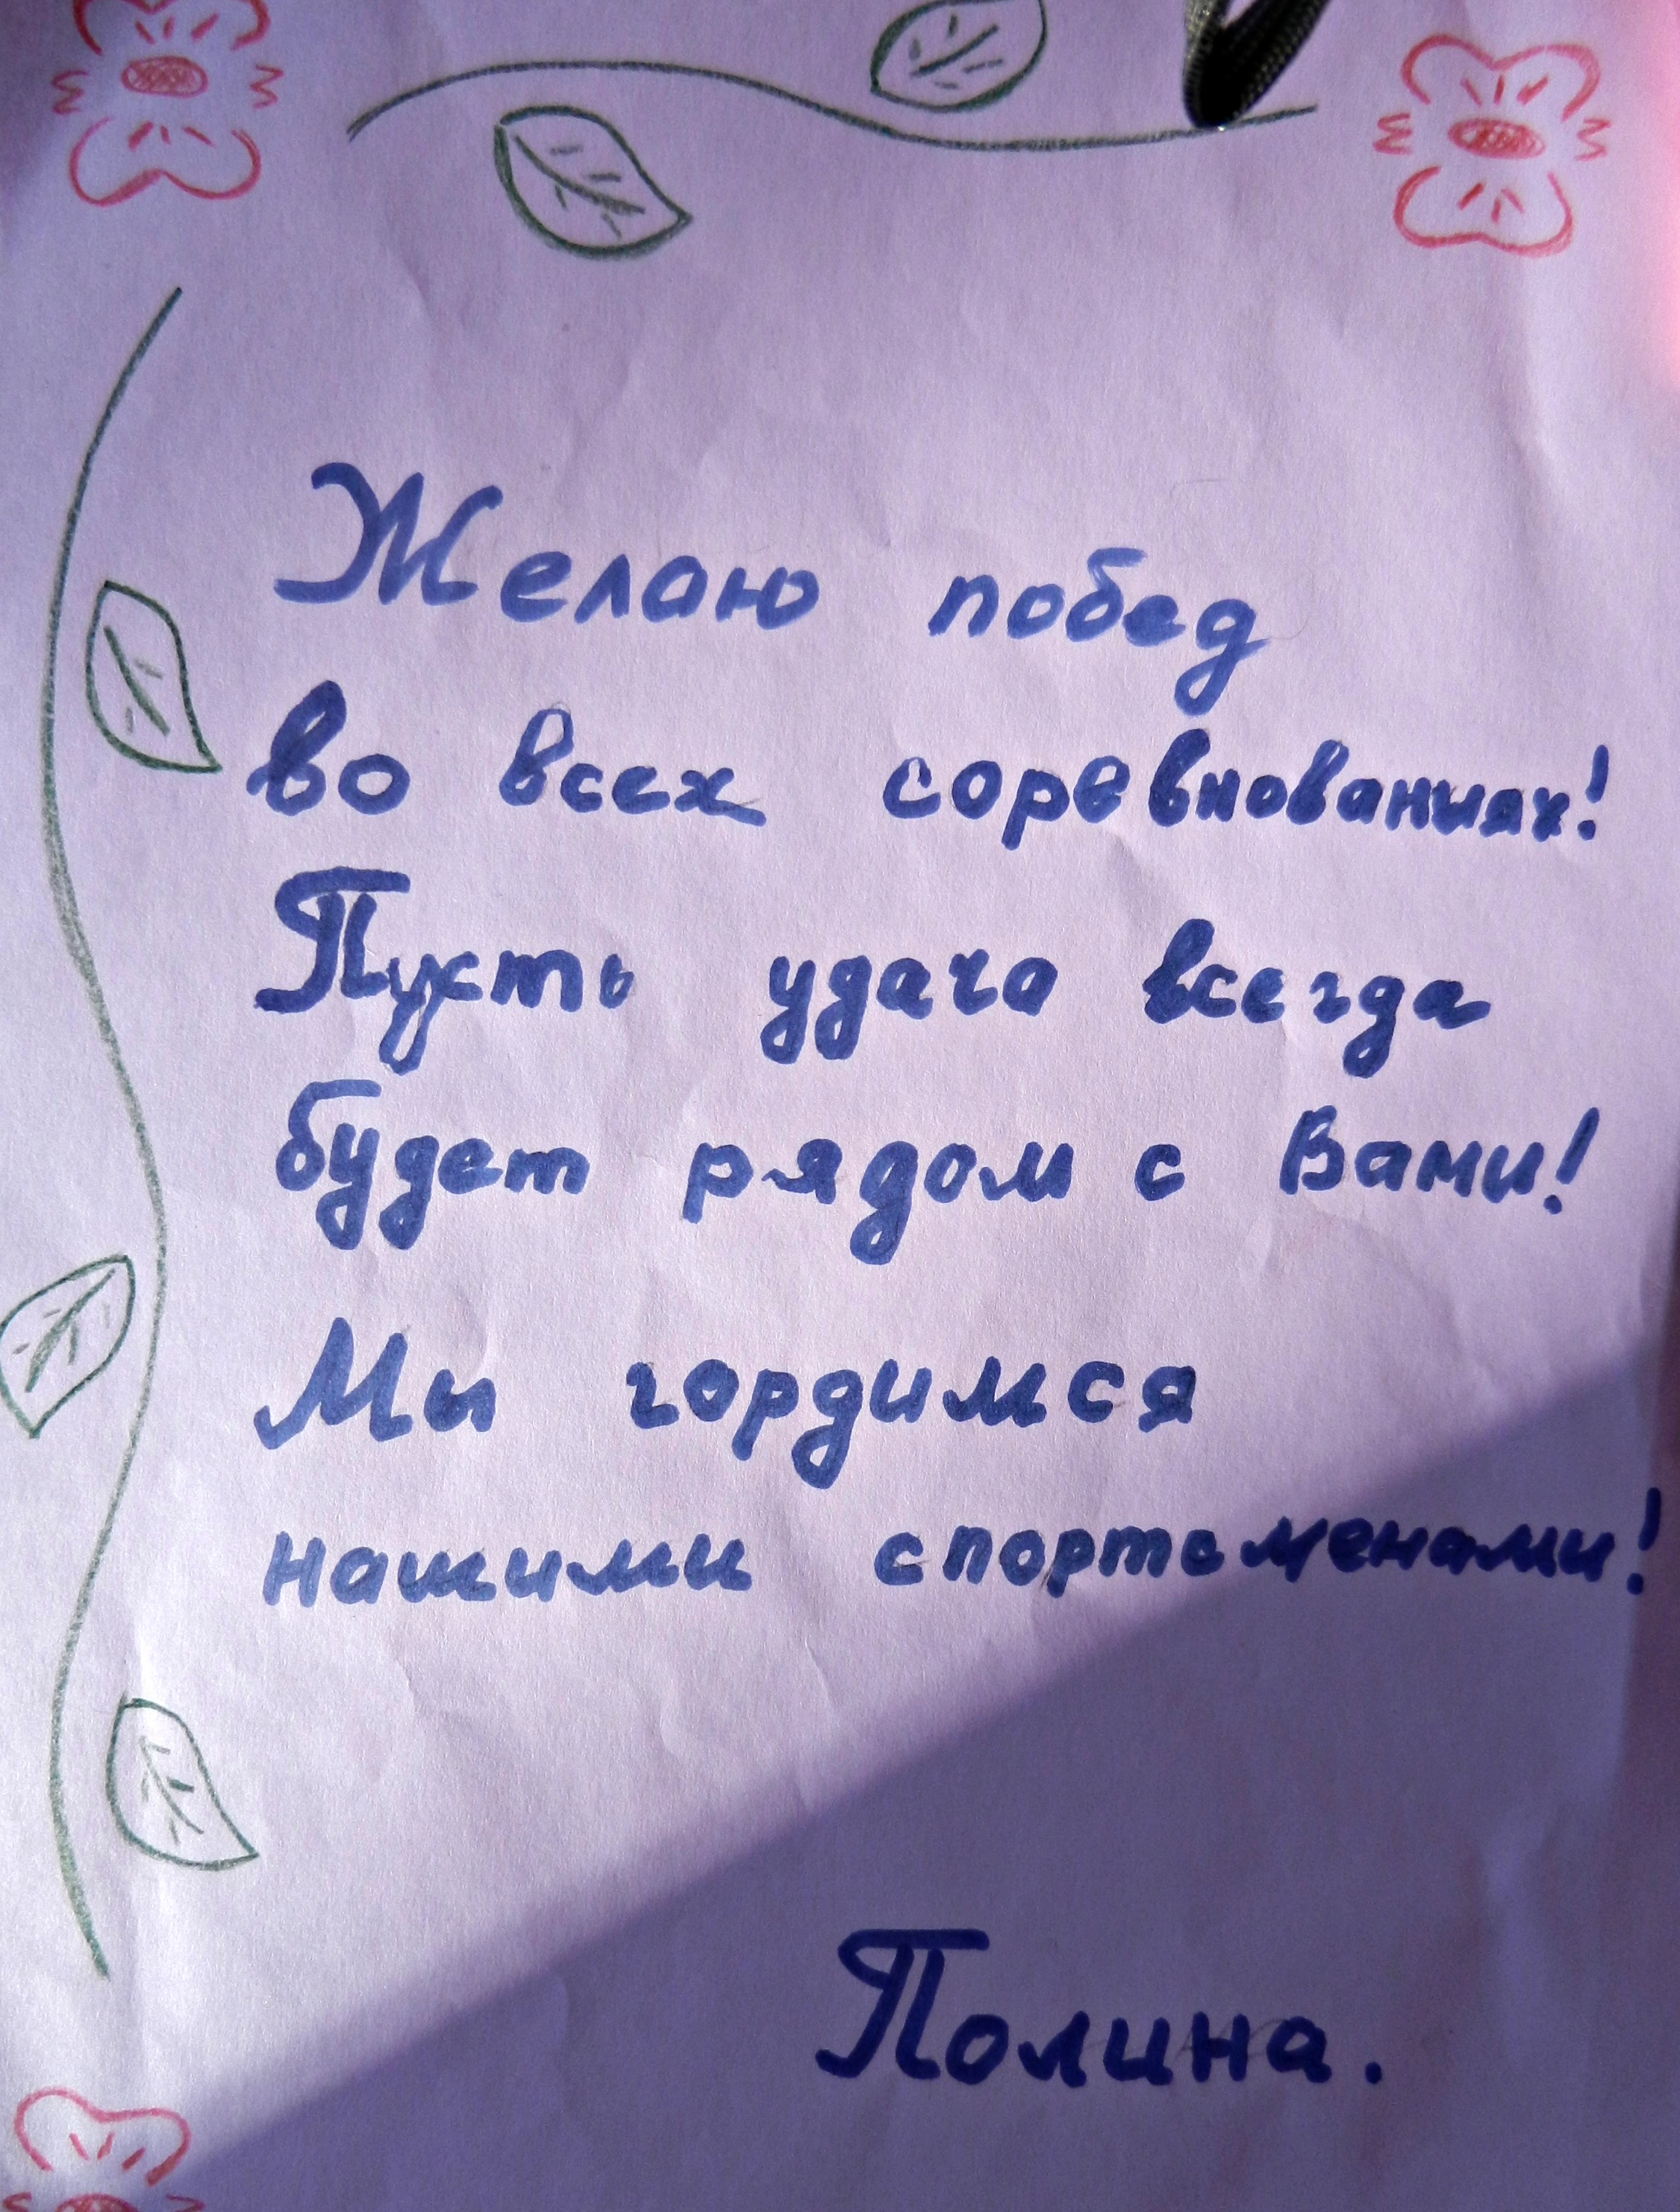 Желаю побед
во всех соревнованиях!
Пусть удача всегда
будет рядом с Вами!
Мы гордимся
нашими спортсменами!
Полина.